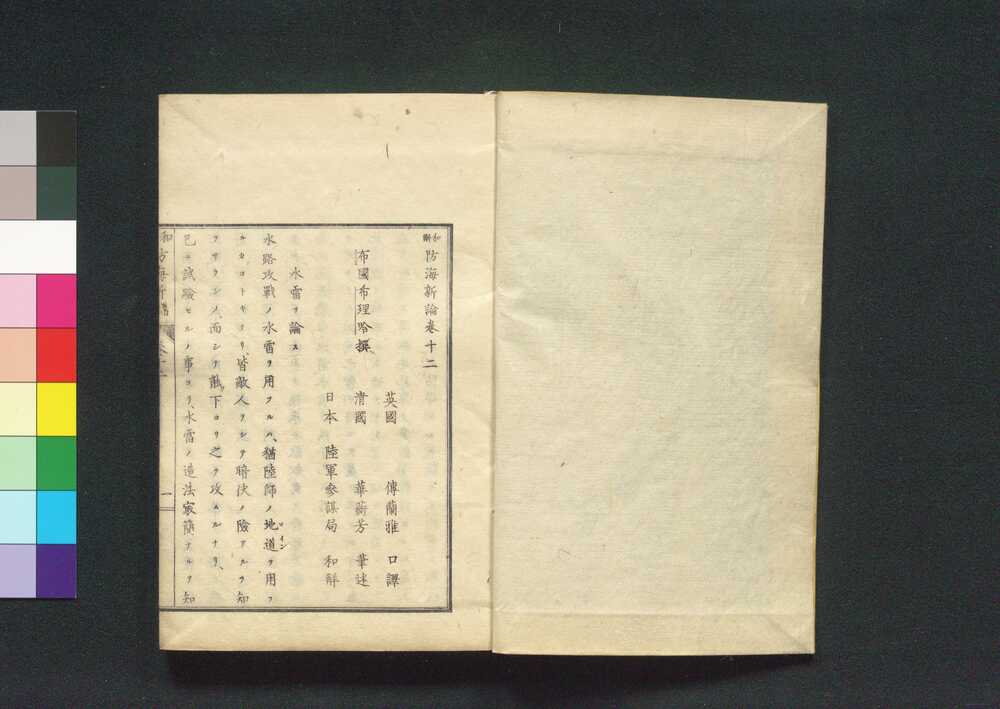 和解 防海新論卷十二
英國 傅蘭雅 口譯
布國希理哈撰 淸國 華蘅芳 筆述
日本 陸軍參謀局 和解
水雷ヲ論ス
水路攻戰ノ水雷ヲ用フルハ、猶陸師ノ地道ヲ用フ
ロイン
ルカコトキナリ、皆敵人ヲシテ暗伏ノ險アルヲ知
ラサラシメ、而シテ敵下ヨリ之ヲ攻ムルナリ、
已ニ試驗セルノ事ヨリ、水雷ノ造法家簡ナルヲ知
一